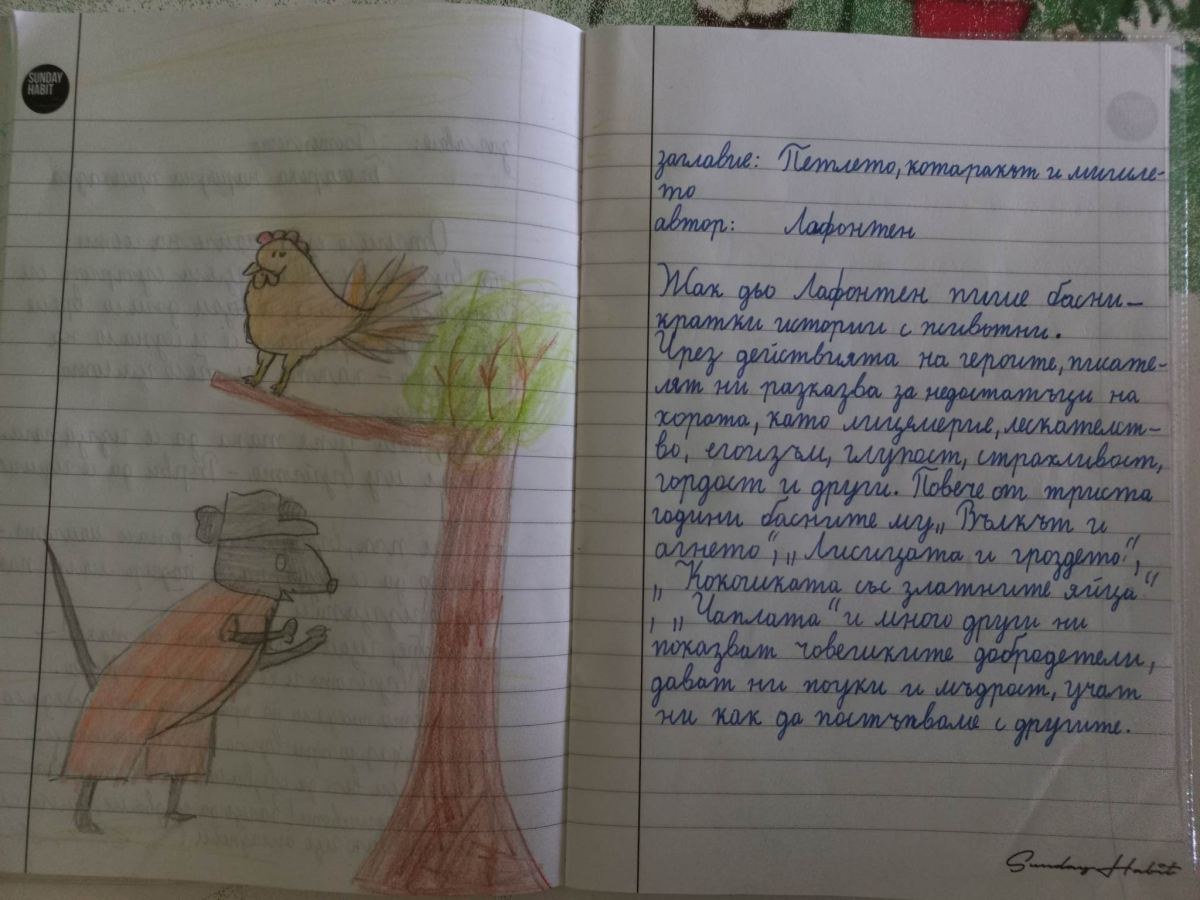 SUNDAY
HABIT
заглавие: Петлето, котаракът и мишле-
то
автор: Лафонтен
Жак дьо Лафонтен пише басни –
кратки истории с животни.
Чрез действията на героите, писате-
лят ни разказва за недостатъци на
хората, като лицемерие, ласкателст-
во, егоизъм, глупост, страхливост,
гордост и други. Повече от триста
години басните му „Вълкът и
агнето“, „Лисицата и гроздето“,
„Кокошката със златните яйца“
, „Чаплата“ и много други ни
показват човешките добродетели,
дават ни поуки и мъдрост, учат
ни как да постъпваме с другите.
Sunday Habit